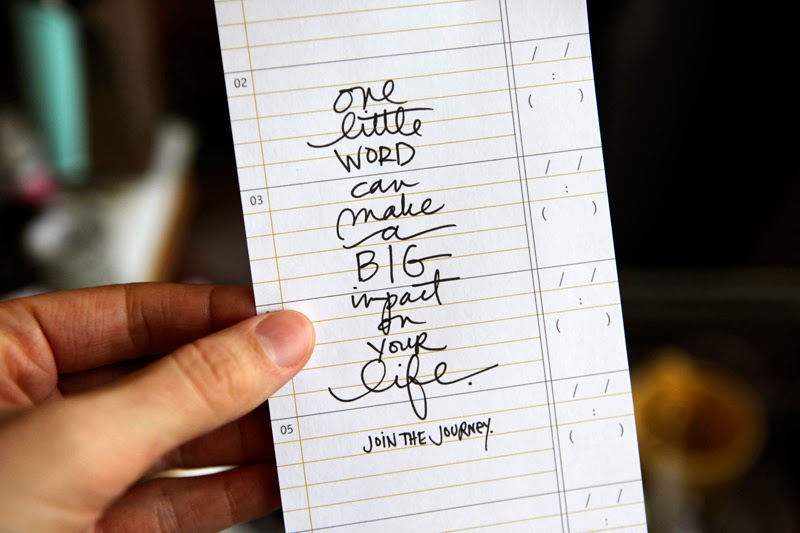 / /
02
:
( )
one
little
WORD
/ /
03
can
:
make
( )
a
BIG
/ /
impact
:
on
( )
your
life.
/ /
05
:
JOIN THE JOURNEY.
( )
/ /
: